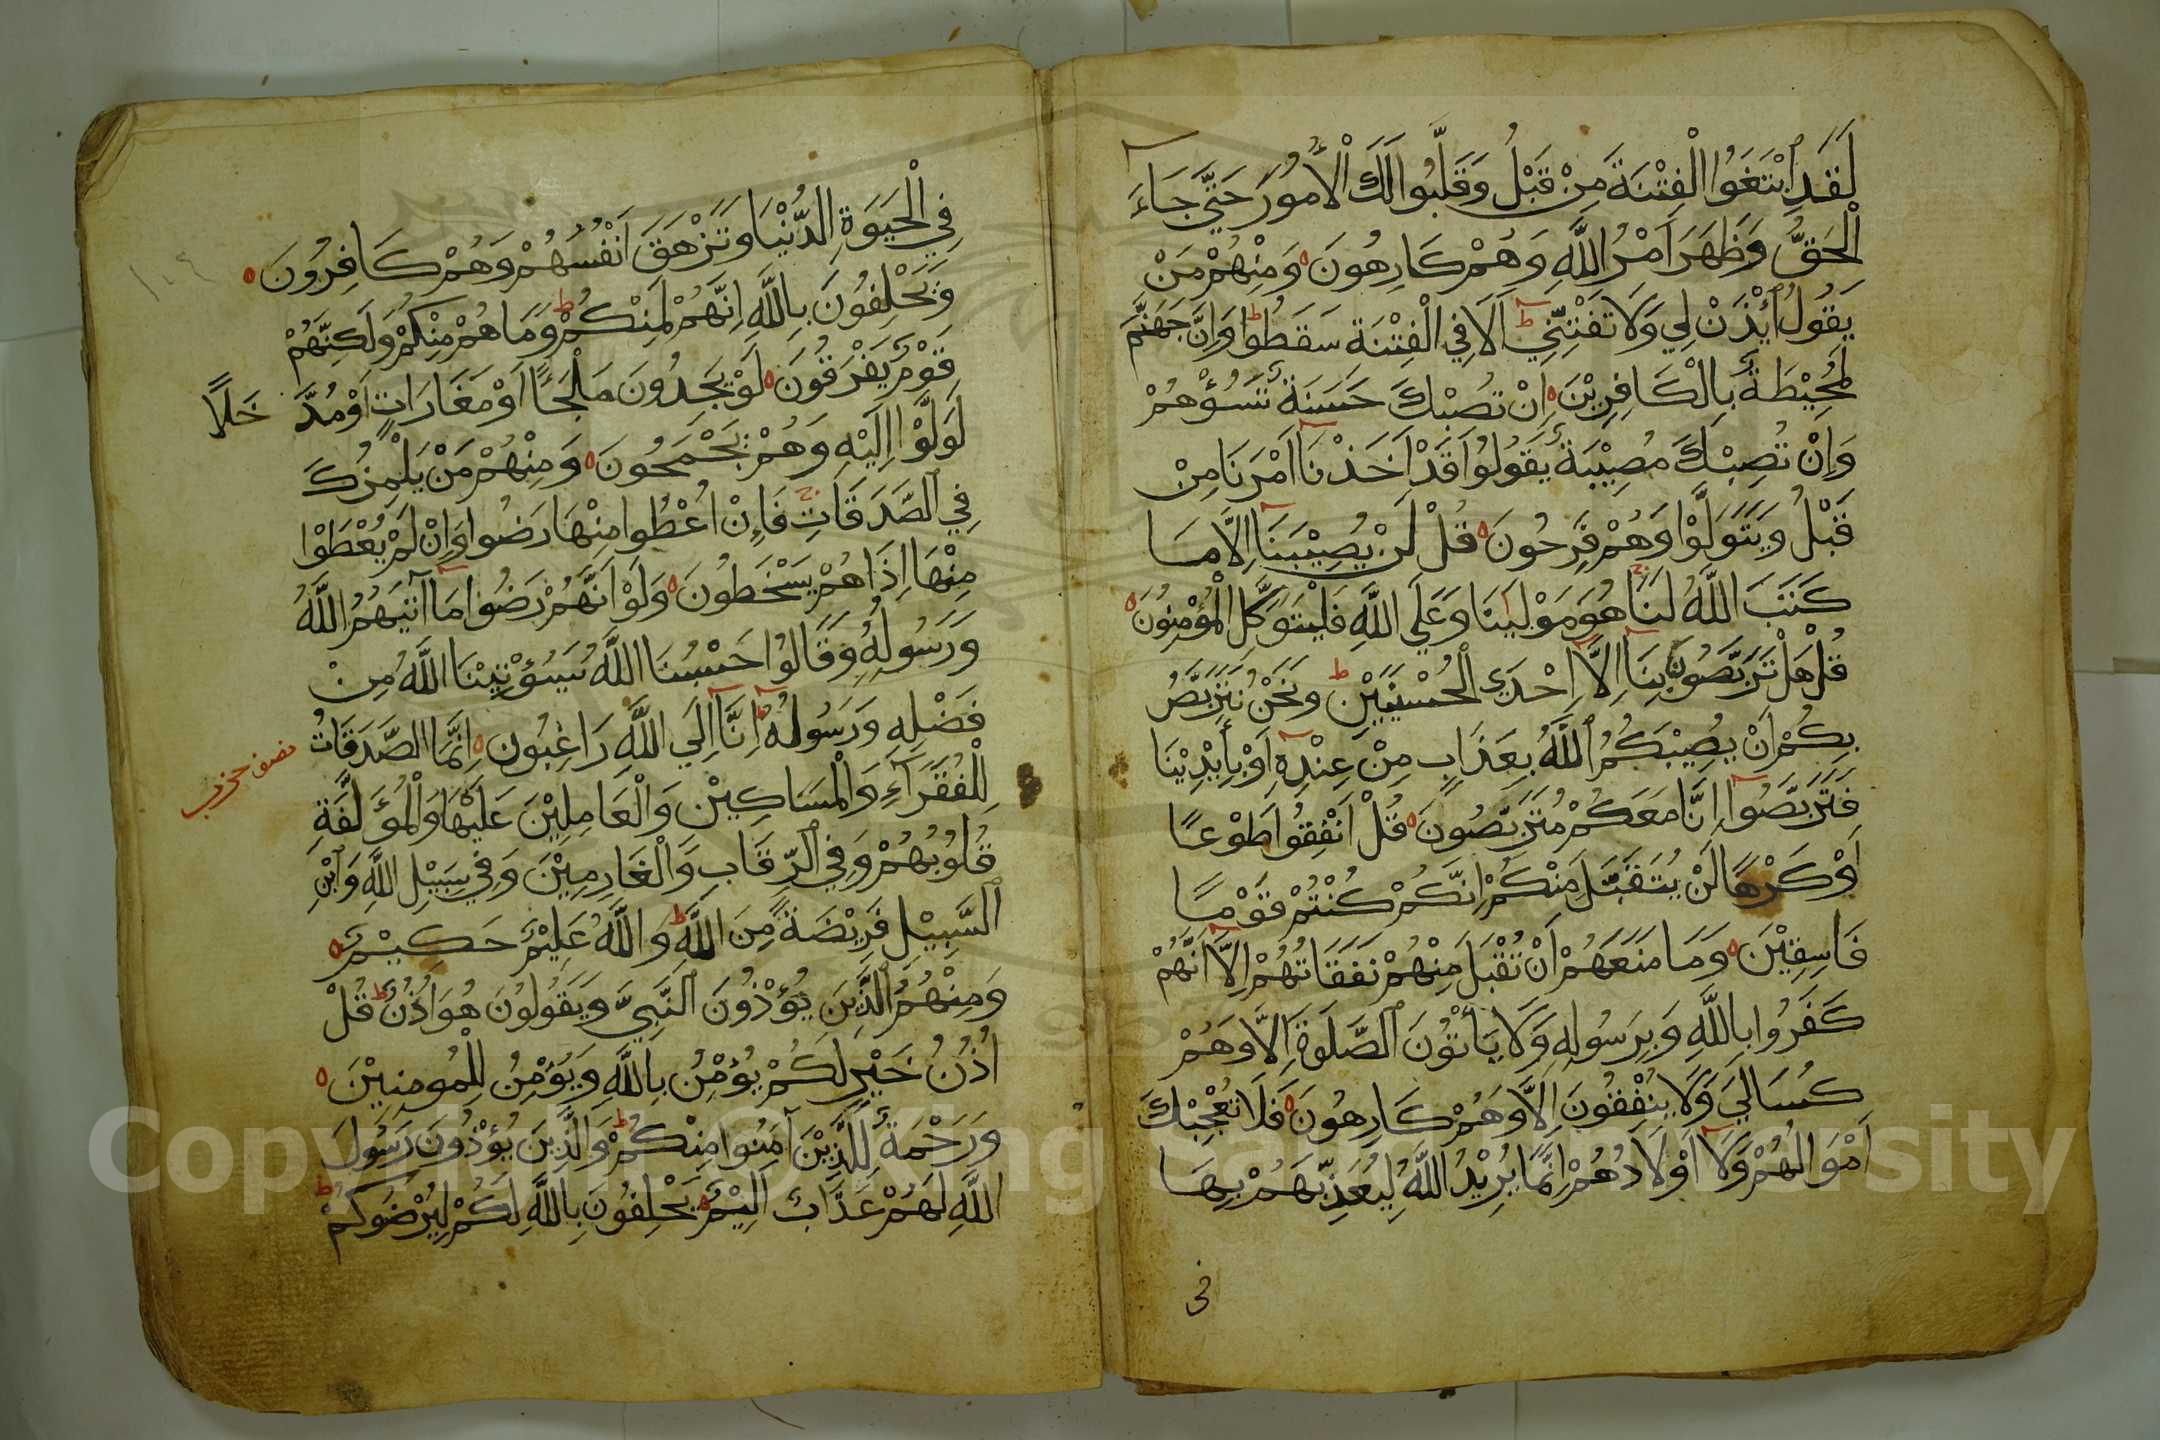 لَقَدِ ابْتَغَوُا الْفِتْنَةَ مِنْ قَبْلُ وَقَلَّبُوا لَكَ الْأُمُورَ حَتَّي جَاءَ
الْحَقُّ وَظَهَرَ اَمْرُ اللَّهِ وَهُمْ كَارِهُونَ ه وَمِنْهُمْ مَنْ
يَقُولُ ائْذَنْ لِي وَلَا تَفْتِنِّي ط اَلَا فِي الْفِتْنَةِ سَقَطُوا ط وَاِنَّ جَهَنَّمَ
لَمُحِيْطَةٌ بِالْكَافِرِيْنَ ه اِنْ تُصِبْكَ حَسَنَةٌ تَسُؤْهُمْ
وَاِنْ تُصِبْكَ مُصِيْبَةٌ يَقُولُوا قَدْ اَخَذْنَا اَمْرَنَا مِنْ
قَبْلُ وَيَتَوَلَّوْا وَهُمْ فَرِحُونَ ه قُلْ لَنْ يُصِيْبَنَا اِلَّا مَا
كَتَبَ اللَّهُ لَنَا ج هُوَ مَوْلَينَا وَعَلَي اللَّهِ فَلْيَتَوَكَّلِ الْمُؤْمِنُونَ ه
قُلْ هَلْ تَرَبَّصُونَ بِنَا اِلَّا اِحْدَي الْحُسْنَيَيْنِ ط وَنَحْنُ نَتَرَبَّصُ
بِكُمْ اَنْ يُصِيْبَكُمُ اللَّهُ بِعَذَابٍ مِنْ عِنْدِهِ اَوْ بِأَيْدِيْنَا
فَتَرَبَّصُوا اِنَّا مَعَكُمْ مُتَرَبِّصُونَ ه قُلْ اَنْفِقُوا طَوْعًا
اَوْ كَرْهًا لَنْ يُتَقَبَّلَ مِنْكُمْ اِنَّكُمْ كُنْتُمْ قَوْمًا
فَاسِقِيْنَ ه وَمَا مَنَعَهُمْ اَنْ تُقْبَلَ مِنْهُمْ نَفَقَاتُهُمْ اِلَّا اَنَّهُمْ
كَفَرُوا بِاللَّهِ وَبِرَسُولِهِ وَلَا يَأْتُونَ الصَّلَوةَ اِلَّا وَهُمْ
كُسَالَي وَلَا يُنْفِقُونَ اِلَّا وَهُمْ كَارِهُونَ ه فَلَا تُعْجِبْكَ
اَمْوَالُهُمْ وَلَا اَوْلَادُهُمْ اِنَّمَا يُرِيْدُ اللَّهُ لِيُعَذِّبَهُمْ بِهَا
في
فِي الْحَيَوةِ الدُّنْيَا وَتَزْهَقَ اَنْفُسُهُمْ وَهُمْ كَافِرُونَ ه
١٠٩
وَيَحْلِفُونَ بِاللَّهِ اِنَّهُمْ لَمِنْكُمْ ط وَمَا هُمْ مِنْكُمْ وَلَكِنَّهُمْ
قَوْمٌ يَفْرَقُونَ ه لَوْ يَجِدُونَ مَلْجَاً اَوْ مَغَارَاتٍ اَوْ مُدَّ خَلًا
لَوَلَّوْا اِلَيْهِ وَهُمْ يَجْمَحُونَ ه وَمِنْهُمْ مَنْ يَلْمِزُكَ
فِي الصَّدَقَاتِ ج فَاِنْ اُعْطُوا مِنْهَا رَضُوا وَاِنْ لَمْ يُعْطَوْا
مِنْهَا اِذَا هُمْ يَسْخَطُونَ ه وَلَوْ اَنَّهُمْ رَضُوا مَا آتَيهُمُ اللَّهُ
وَرَسُولُهُ وَقَالُوا حَسْبُنَا اللَّهُ سَيُؤْتِيْنَا اللَّهُ مِنْ
فَضْلِهِ وَرَسُولُهُ ط اِنَّا اِلَي اللَّهِ رَاغِبُونَ ه اِنَّمَا الصَّدَقَاتُ
نصف حزب
لِلْفُقَرَآءِ وَالْمَسَاكِيْنِ وَالْعَامِلِيْنَ عَلَيْهَا وَالْمُؤَلَّفَةِ
قُلُوبُهُمْ وَفِي الرِّقَابِ وَالْغَارِمِيْنَ وَفِي سَبِيْلِ اللَّهِ وَابْنِ
السَّبِيْلِ فَرِيْضَةً مِنَ اللَّهِ ط وَاللَّهُ عَلِيْمٌ حَكِيْمٌ ه
وَمِنْهُمُ الَّذِيْنَ يُؤْذُونَ النَّبِيَّ وَيَقُولُونَ هُوَ اُذُنٌ ط قُلْ
اُذُنُ خَيْرٍ لَكُمْ يُؤْمِنُ بِاللَّهِ وَيُؤْمِنُ لِلْمُومِنِيْنَ ه
وَرَحْمَةٌ لِلَّذِيْنَ آمَنُوا مِنْكُمْ ط وَالَّذِيْنَ يُؤْذُونَ رَسُولَ
اللَّهِ لَهُمْ عَذَابٌ اَلِيْمٌ ه يَحْلِفُونَ بِاللَّهِ لَكُمْ لِيُرْضُوكُمْ ط
Copyright © King Saud University